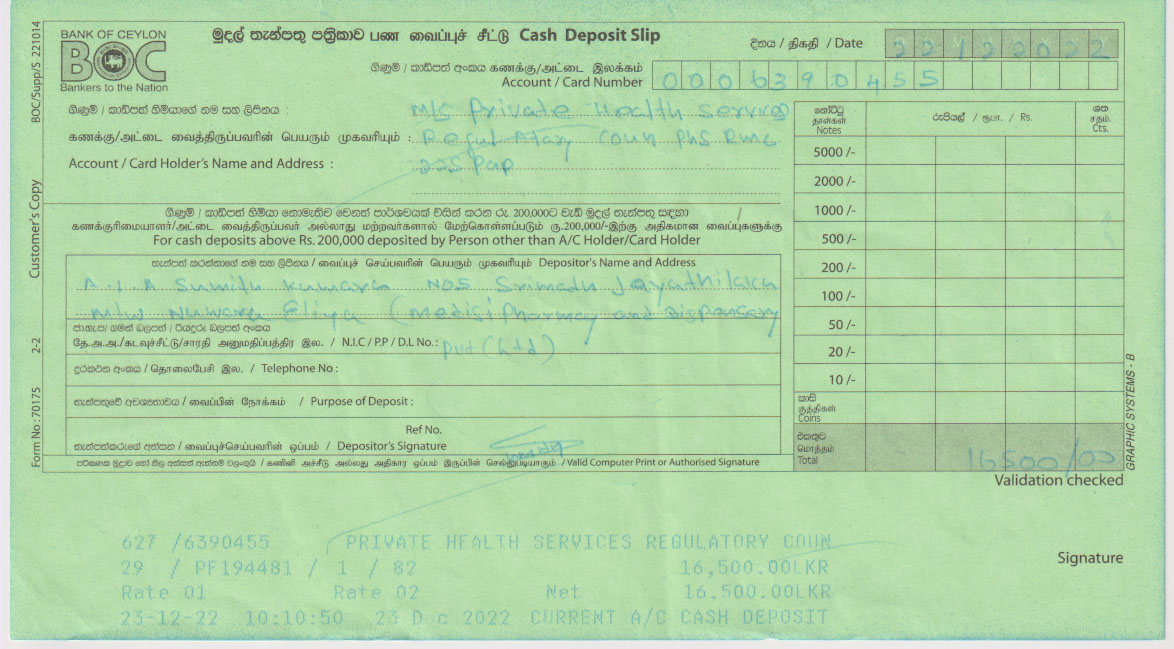 BANK OF CEYLON
BOC
Bankers to the Nation
මුදල් තැන්පතු පත්‍රිකාව பண வைப்புச் சீட்டு Cash Deposit Slip
දිනය / திகதி / Date 22122022
ගිණුම් / කාඩ්පත් අංකය கணக்கு/அட்டை இலக்கம்
Account / Card Number 0006390455
ගිණුම් / කාඩ්පත් හිමියාගේ නම සහ ලිපිනය :
கணக்கு/அட்டை வைத்திருப்பவரின் பெயரும் முகவரியும் :
Account / Card Holder's Name and Address :
M/S Private Health Services
Regulatary Coun PHS RMC
225 Pap
ගිණුම් / කාඩ්පත් හිමියා නොමැතිව වෙනත් පාර්ශවයක් විසින් කරන රු. 200,000ට වැඩි මුදල් තැන්පතු සඳහා
கணக்குரிமையாளர்/அட்டை வைத்திருப்பவர் அல்லாது மற்றவர்களால் மேற்கொள்ளப்படும் ரூ.200,000/-இற்கு அதிகமான வைப்புகளுக்கு
For cash deposits above Rs. 200,000 deposited by Person other than A/C Holder/Card Holder
තැන්පත් කරන්නාගේ නම සහ ලිපිනය / வைப்புச் செய்பவரின் பெயரும் முகவரியும் Depositor's Name and Address
A. I. A Sumith Kumara No5 Srimadu Jayathilaka
M/W Nuwara Eliya (Medisi Pharmacy and Dispensary
pvt (Ltd)
ජා.හැ.ප/ ගමන් බලපත් / රියදුරු බලපත් අංකය
தே.அ.அ./கடவுச்சீட்டு/சாரதி அனுமதிப்பத்திர இல. / N.I.C / P.P / D.L No.:
දුරකථන අංකය / தொலைபேசி இல. / Telephone No :
තැන්පතුවේ අවශ්‍යතාවය / வைப்பின் நோக்கம் / Purpose of Deposit :
Ref No.
තැන්පත්කරුගේ අත්සන / வைப்புச்செய்பவரின் ஒப்பம் / Depositor's Signature
පරිගණක මුද්‍රාව හෝ නිල අත්සන් ඇත්නම් වලංගුයි / கணினி அச்சீடு அல்லது அதிகார ஒப்பம் இருப்பின் செல்லுபடியாகும் / Valid Computer Print or Authorised Signature
නෝට්ටු
தாள்கள்
Notes
රුපියල් / ரூபா. / Rs.
ශත
சதம்.
Cts.
5000 /-
2000 /-
1000 /-
500 /-
200 /-
100 /-
50 /-
20 /-
10 /-
කාසි
குத்திகள்
Coins
එකතුව
மொத்தம்
Total 16500/00
Validation checked
Signature
BOC/Supp/S 221014
Customer's Copy
2-2
Form No : 70175
GRAPHIC SYSTEMS - B
627 /6390455 PRIVATE HEALTH SERVICES REGULATORY COUN
29 / PF194481 / 1 / 82 16,500.00LKR
Rate 01 Rate 02 Net 16,500.00LKR
23-12-22 10:10:50 23 D c 2022 CURRENT A/C CASH DEPOSIT